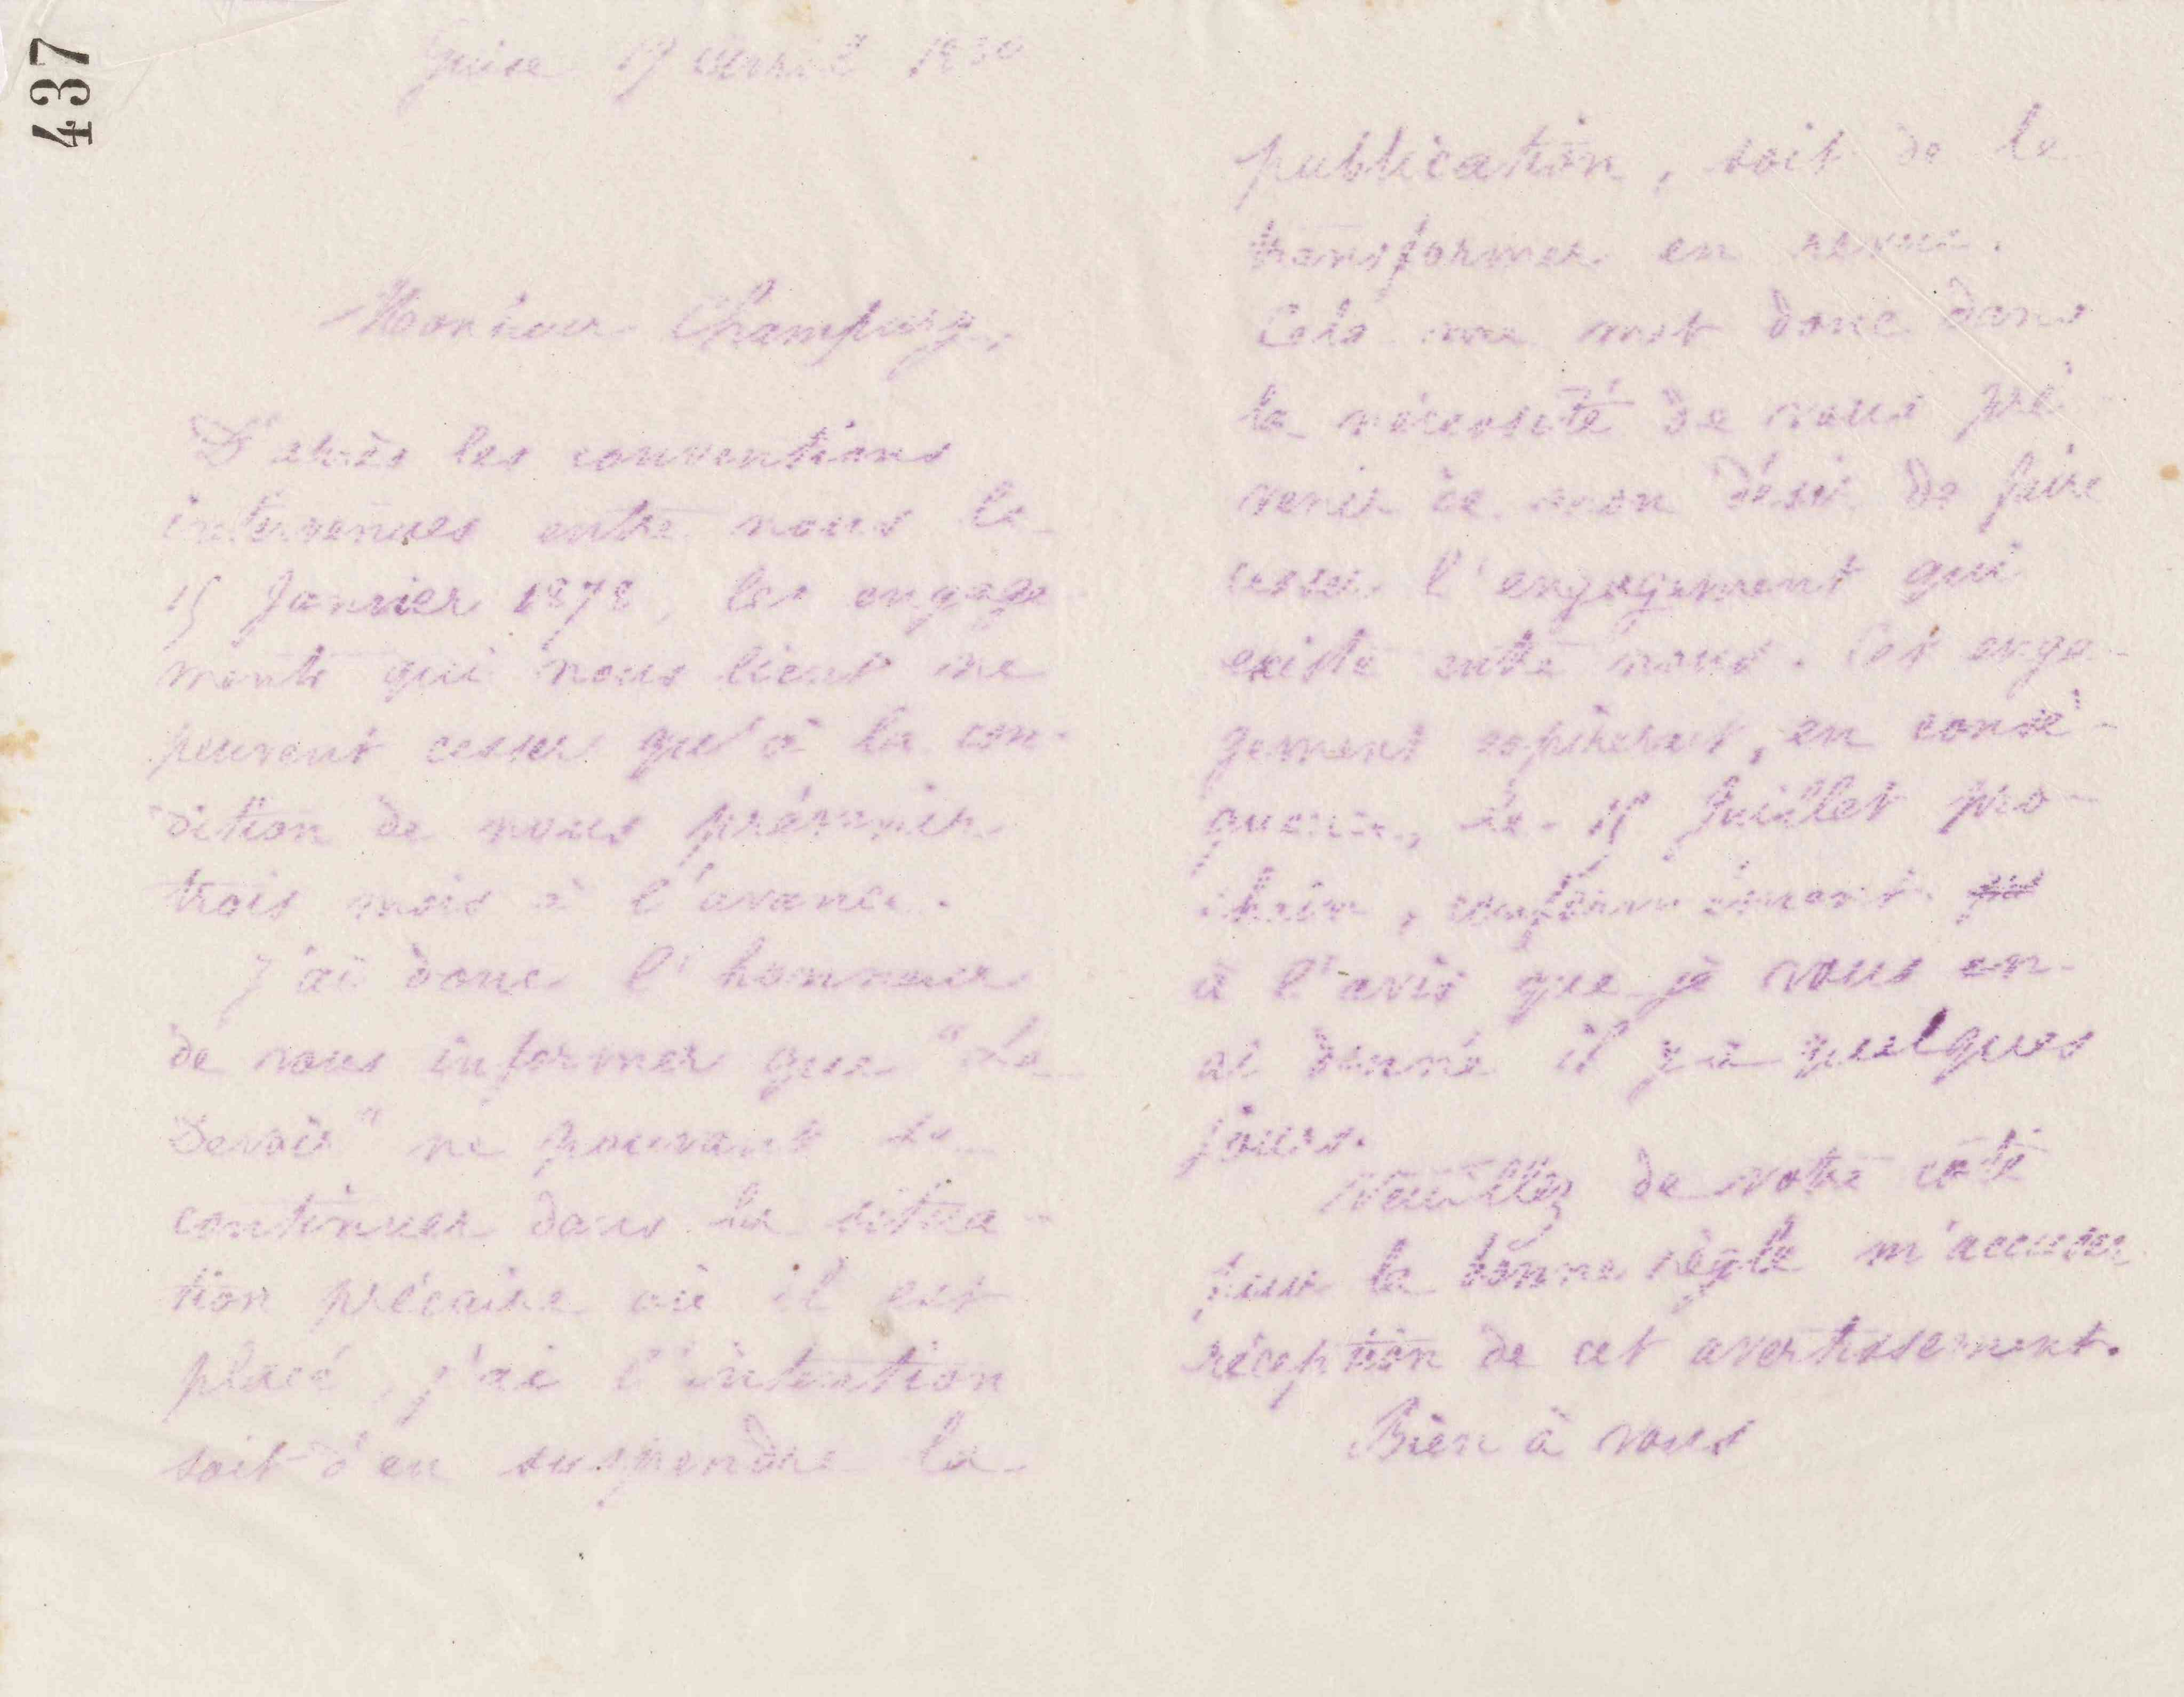 437
Guise 17 Avril 1880
Monsieur Champury,
D'après les conventions
intervenues entre nous le
15 Janvier 1878, les engage
ments qui nous lient ne
peuvent cesser qu'à la con-
dition de nous prévenir
trois mois à l'avance.
J'ai donc l'honneur
de vous informer que "Le
Devoir" ne pouvant se
continuer dans la situa-
tion précaire où il est
placé, j'ai l'intention
soit d'en suspendre la
publication, soit de le
transformer en revue.
Cela me met donc dans
la nécessité de vous pré
venir de mon désir de faire
cesser l'engagement qui
existe entre nous. Cet enga-
gement expirerait, en consé-
quence, le 15 Juillet pro-
chain, conformément
à l'avis que je vous en
ai donné il y a quelques
jours.
Veuillez de votre côté
pour la bonne règle m'accuser
réception de cet avertissement.
Bien à vous